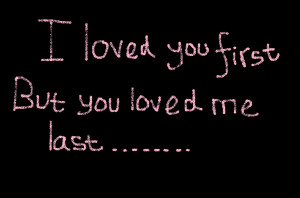 I loved you first
But you loved me
last ........